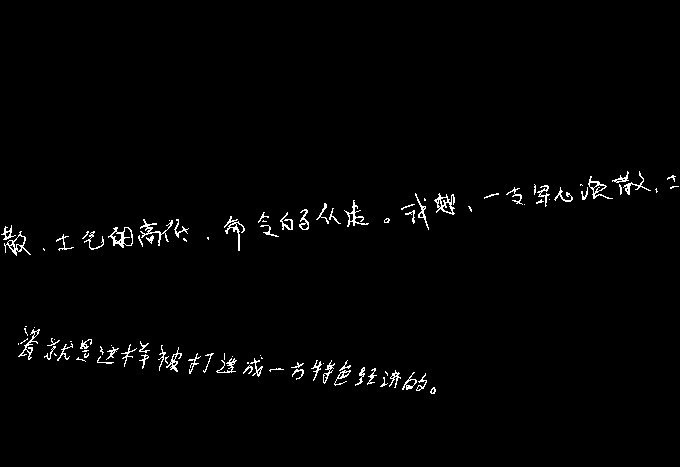 散、士气的高低、命令的从来。我想、一支军心涣散、士
瓷就是这样被打造成一方特色经济的。